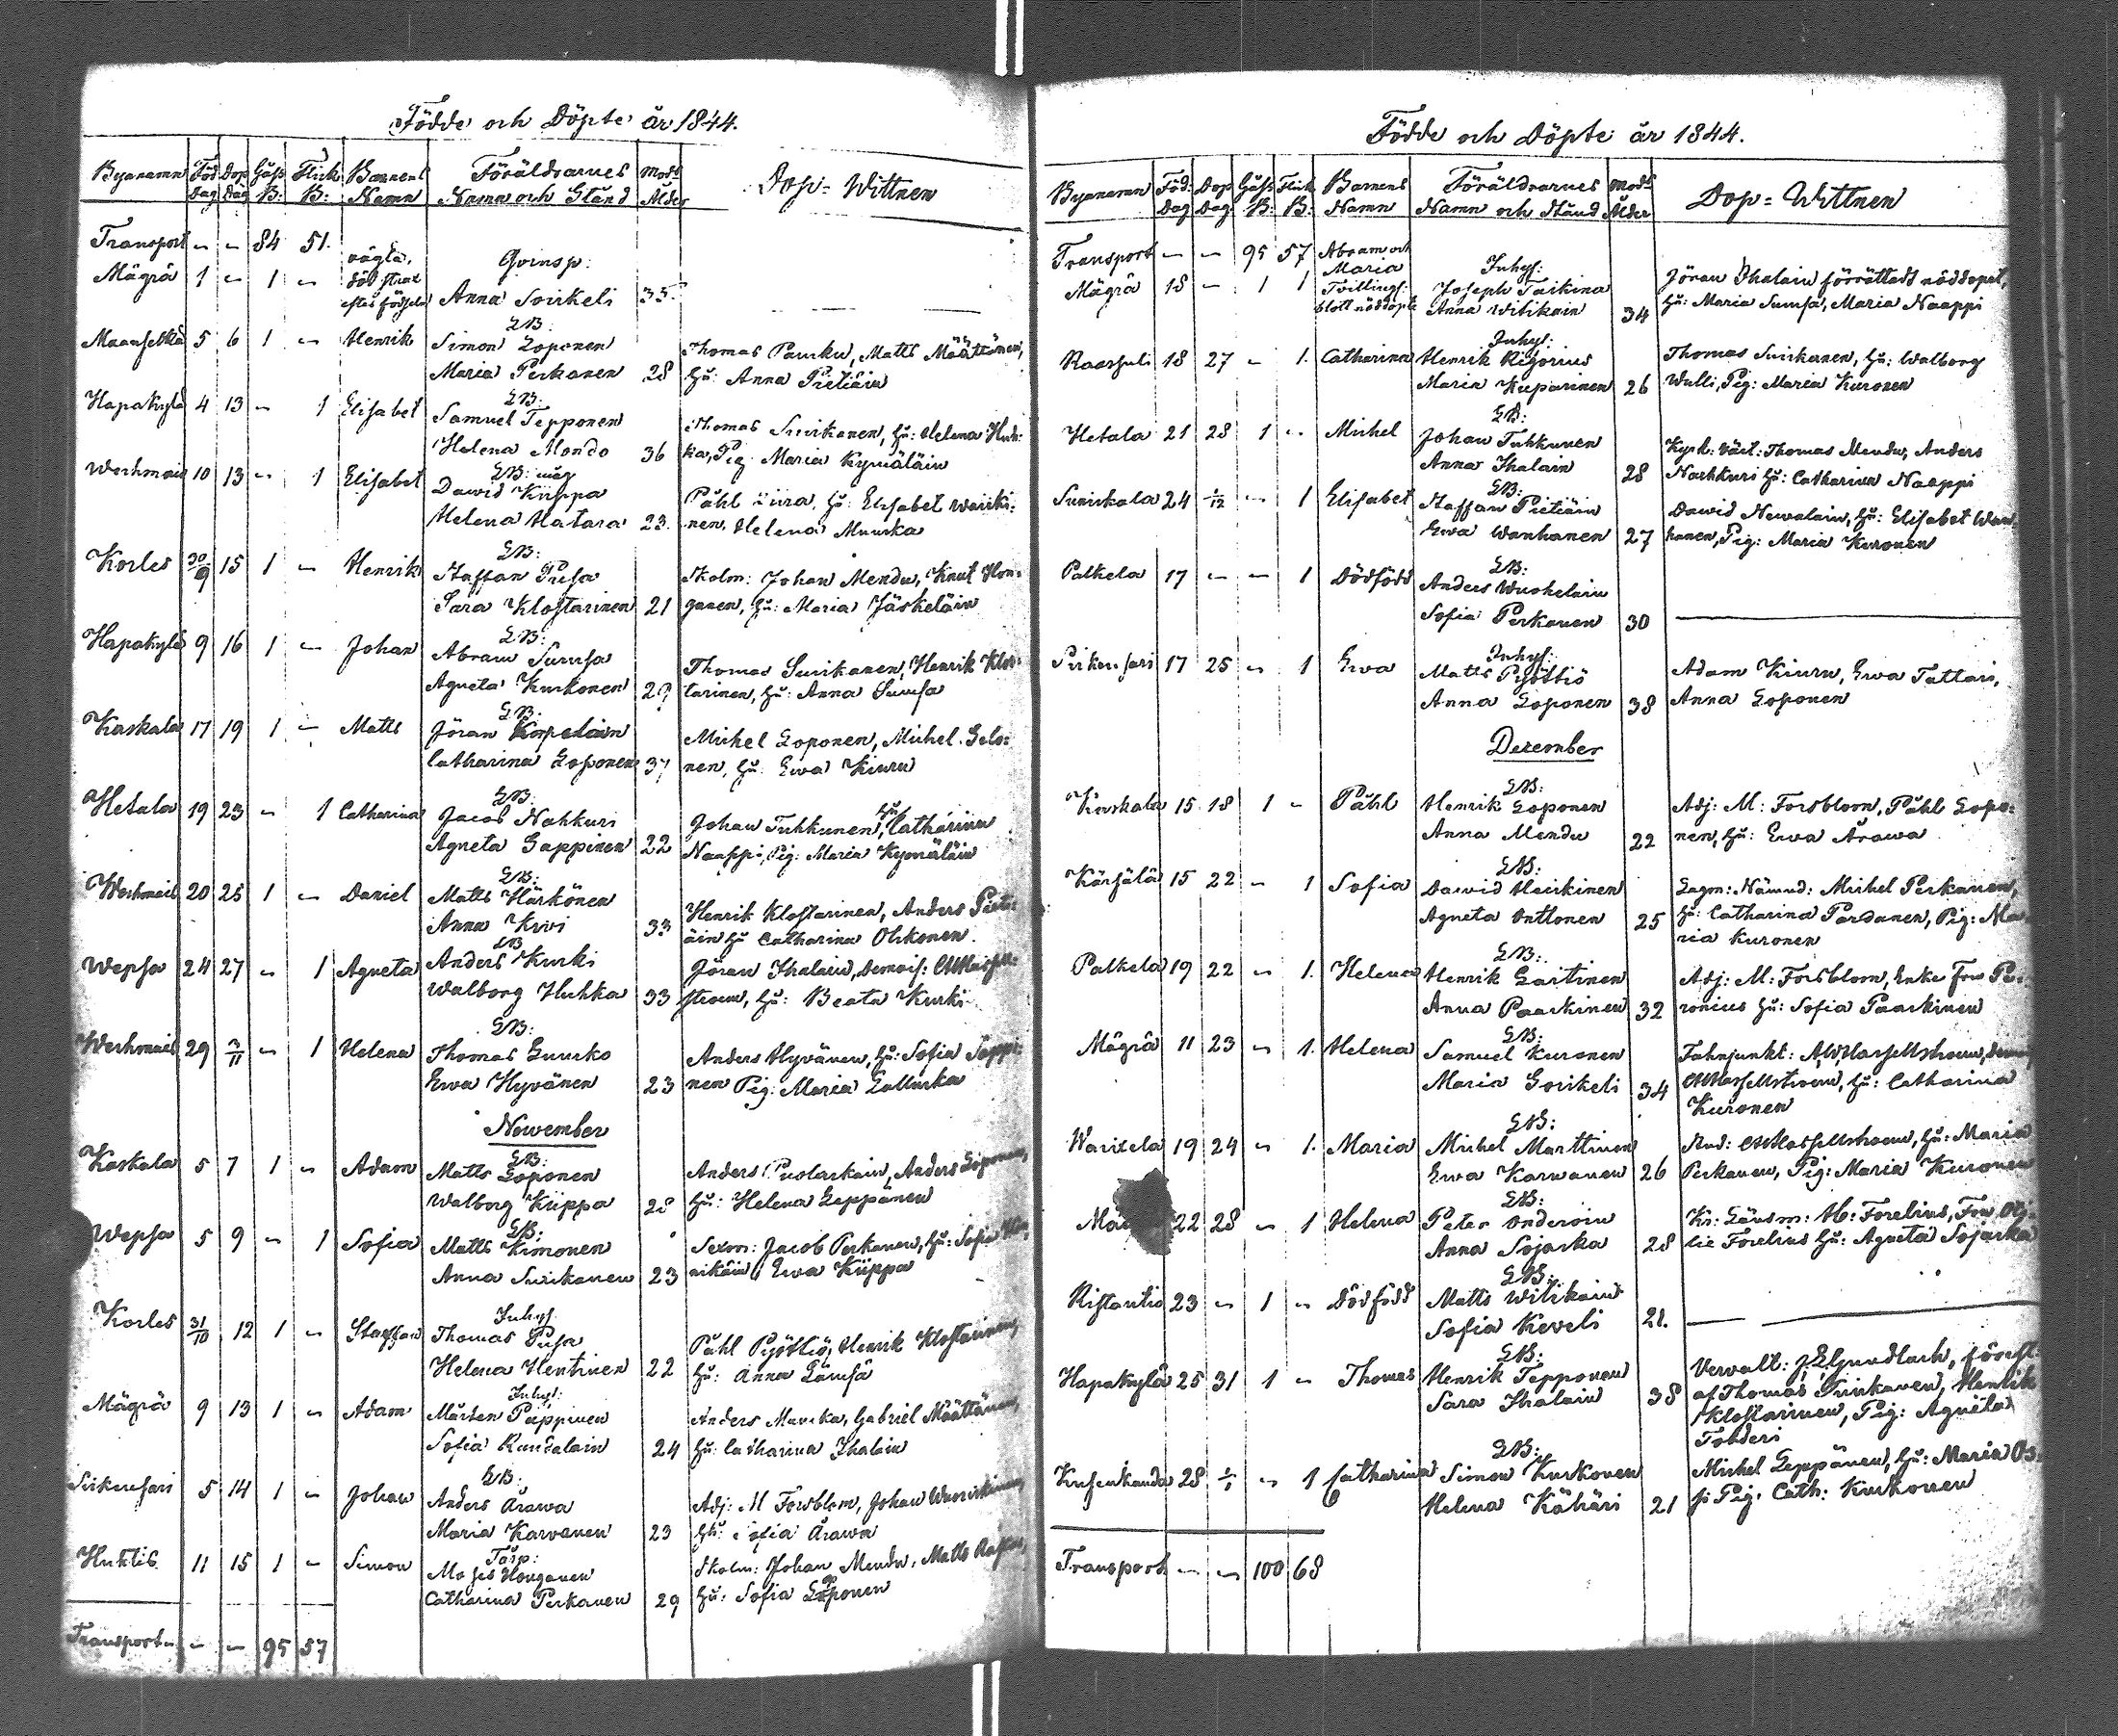 Födde och Döpte år 1844.
Byanamn Föd. Dag Dop Dag Goss B: Flick B: Barnens Namn Föräldrarnes Namn och Stånd Mod:s Ålder Dop-Wittnen
Transport — — 84 51.
Mägrä 1 — 1 — vägla, död strax efter födseln Qvinsp:
Anna Soikeli 35.
Maanselkä 5 6 1 — Henrik LB: Simon Loponen
Maria Perkanen 28
Thomas Pamku, Matts Määttänen,
Hu: Anna Pietiäin
Hapakylä 4 13 — 1 Elisabet LB: Samuel Tepponen
Helena Mondo 36
Thomas Suikanen, Hu: Helena Huh-
ka, Pig. Maria Kymäläin
Werhmais 10 13 — 1 Elisabet LB: måg Dawid Kiippa
Helena Hatara 23.
Påhl Liira, Hu: Elisabet Wäiski-
nen, Helena Muuska
Korles 30/9 15 1 — Henrik LB: Staffan Pusa
Sara Klostarinen 21
Skolm: Johan Mendu, Knut Hon-
ganen, Hu: Maria Jäskeläin
Hapakylä 9 16 1 — Johan LB: Abram Sumsa
Agneta Kurkonen
Thomas Suikanen, Henrik Klos-
tarinen, Hu: Anna Sumsa
Kaskala 17 19 1 — Matts LB: Jöran Korpelain
Catharina Loponen 37
Michel Loponen, Michel Golo-
nen, Hu: Ewa Kiuru
Hetala 19 23 — 1 Catharina LB: Jacob Nahkuri
Agneta Gappinen 22
Johan Tuhkunen, Hu: Catharina
Naappi, Pig: Maria Kymäläin
Werhmais 20 25 1 — Daniel LB: Matts Härkönen
Anna Kivi 33
Henrik Klostarinen, Anders Pieti-
äin Hu Catharina Ohkonen.
Wepsa 24 27 — 1 Agneta LB Anders Kurki
Walborg Huhka 33
Jöran Ihalain, Demois:
Hu: Beata Kurki
Werhmais 29 3/11 — 1 Helena LB: Thomas Guurko
Ewa Hyvänen 23
Anders Hyvänen, Hu: Sofia Toppi-
nen Pig: Maria Lallukka
November
Kaskala 5 7 1 — Adam LB: Matts Loponen
Walborg Kiippa 28
Anders Puolackain, Anders Loponen,
Hu: Helena Leppänen
Wepsa 5 9 — 1 Sofia LB: Matts Kimonen
Anna Suikanen 23
Sexm: Jacob Perkanen, Hu: Sofia
Ewa Kiippa
Korles 31/10 12 1 — Staffan Inhys: Thomas Pusa
Helena Hentinen 22
Påhl Pyöttiö, Henrik Klostarinen,
Hu: Anna Lämsä
Mägrä 9 13 1 — Adam Inhys: Mårten Pappinen
Sofia Rundalain 24
Anders Muuska, Gabriel Määttänen,
Hu: Catharina Ihalain
Sirkensari 5 14 1 — Johan LB: Anders Ärawa
Maria Karvanen 23
Adj: M Forsblom, Johan
Hu: Sofia Ärawa
Huhtis 11 15 1 — Simon Torp: Moses Honganen
Catharina Perkanen 29
Skolm: Johan Mendu, Matts
Hu: Sofia Loponen
Transport — — 95 57
Födde och Döpte år 1844.
Byanamn Föd: Dag Dop Dag Goss B: Flick B: Barnens Namn Föräldrarnes Namn och Stånd Mod:s Ålder Dop-Wittnen
Transport — — 95 57
Mägrä 18 — 1 1 Abram och Maria Tvillings: blott nöddöpte Inhys: Joseph Taikina
Anna Witikain 34
Jöran Ihalain förrättadt nöddopet,
Hu: Maria Sumsa, Maria Naappi
Raasuli 18 27 — 1. Catharina Inhys: Henrik Rigorius
Maria Kuparinen 26
Thomas Suikanen, Hu: Walborg
Wulli, Pig: Maria Kuronen
Hetala 21 28 1 — Michel LB: Johan Tuhkunen
Anna Ihalain 28
Kyrk: värt: Thomas Mendu, Anders
Nachkuri Hu: Catharina Naappi
Suurikala 24 1/12 — 1 Elisabet LB: Staffan Pietiäin
Ewa Wanhanen 27
Dawid Newalain, Hu: Elisabet Wan-
hanen, Pig: Maria Kuronen
Palkela 17 — — 1 Dödfödd LB: Anders Wuohelain
Sofia Perkanen 30
Sirkensari 17 25 — 1 Ewa Inhys: Matts Pyöttiö
Anna Loponen 38
Adam Kiuru, Ewa Tattari,
Anna Loponen
December
Kaskala 15 18 1 — Påhl LB: Henrik Loponen
Anna Mendu 22
Adj: M: Forsblom, Påhl Lopo-
nen, Hu: Ewa Ärawa
Kärsälä 15 22 — 1 Sofia LB: Dawid Heikinen
Agneta Onttonen 25
Lagm: Nämnd: Michel Perkanen,
Hu: Catharina Pardanen, Pig: Ma-
ria Kuronen
Palkela 19 22 — 1. Helena LB: Henrik Gartinen
Anna Paarkinen 32
Adj: M: Forsblom, Enke Fru Pe-
ronius Hu: Sofia Paarkinen
Mägrä 11 23 — 1. Helena LB: Samuel Kuronen
Maria Soikeli 34
Fahnjunkt:
Hu: Catharina
Kuronen
Warikela 19 24 — 1. Maria LB: Michel Marttinen
Ewa Karvanen 26
Stud: Hu: Maria
Perkanen, Pig: Maria Kuronen
22 28 — 1 Helena LB: Peter Onderoin
Anna Sojaska 28
Kr: Länsm: Ab: Forelius, Fru Oti-
lie Forelius Hu: Agneta Sojaska
Ristautio 23 — 1 — Dödfödd LB: Matts Witikain
Sofia Keveli 21.
Hapakylä 25 31 1 — Thomas LB: Henrik Tepponen
Sara Ihalain 38
Verwalt: Gundlach, förest:
af Thomas Suikanen, Henrik
Klostarinen, Pig: Agneta
Tobderi
Kusenkanda 28 1/1 — 1 Catharina LB: Simon Kurkonen
Helena Kähäri 21
Michel Leppänen, Hu: Maria
Pig. Cath: Kurkonen
Transport — — 100 68